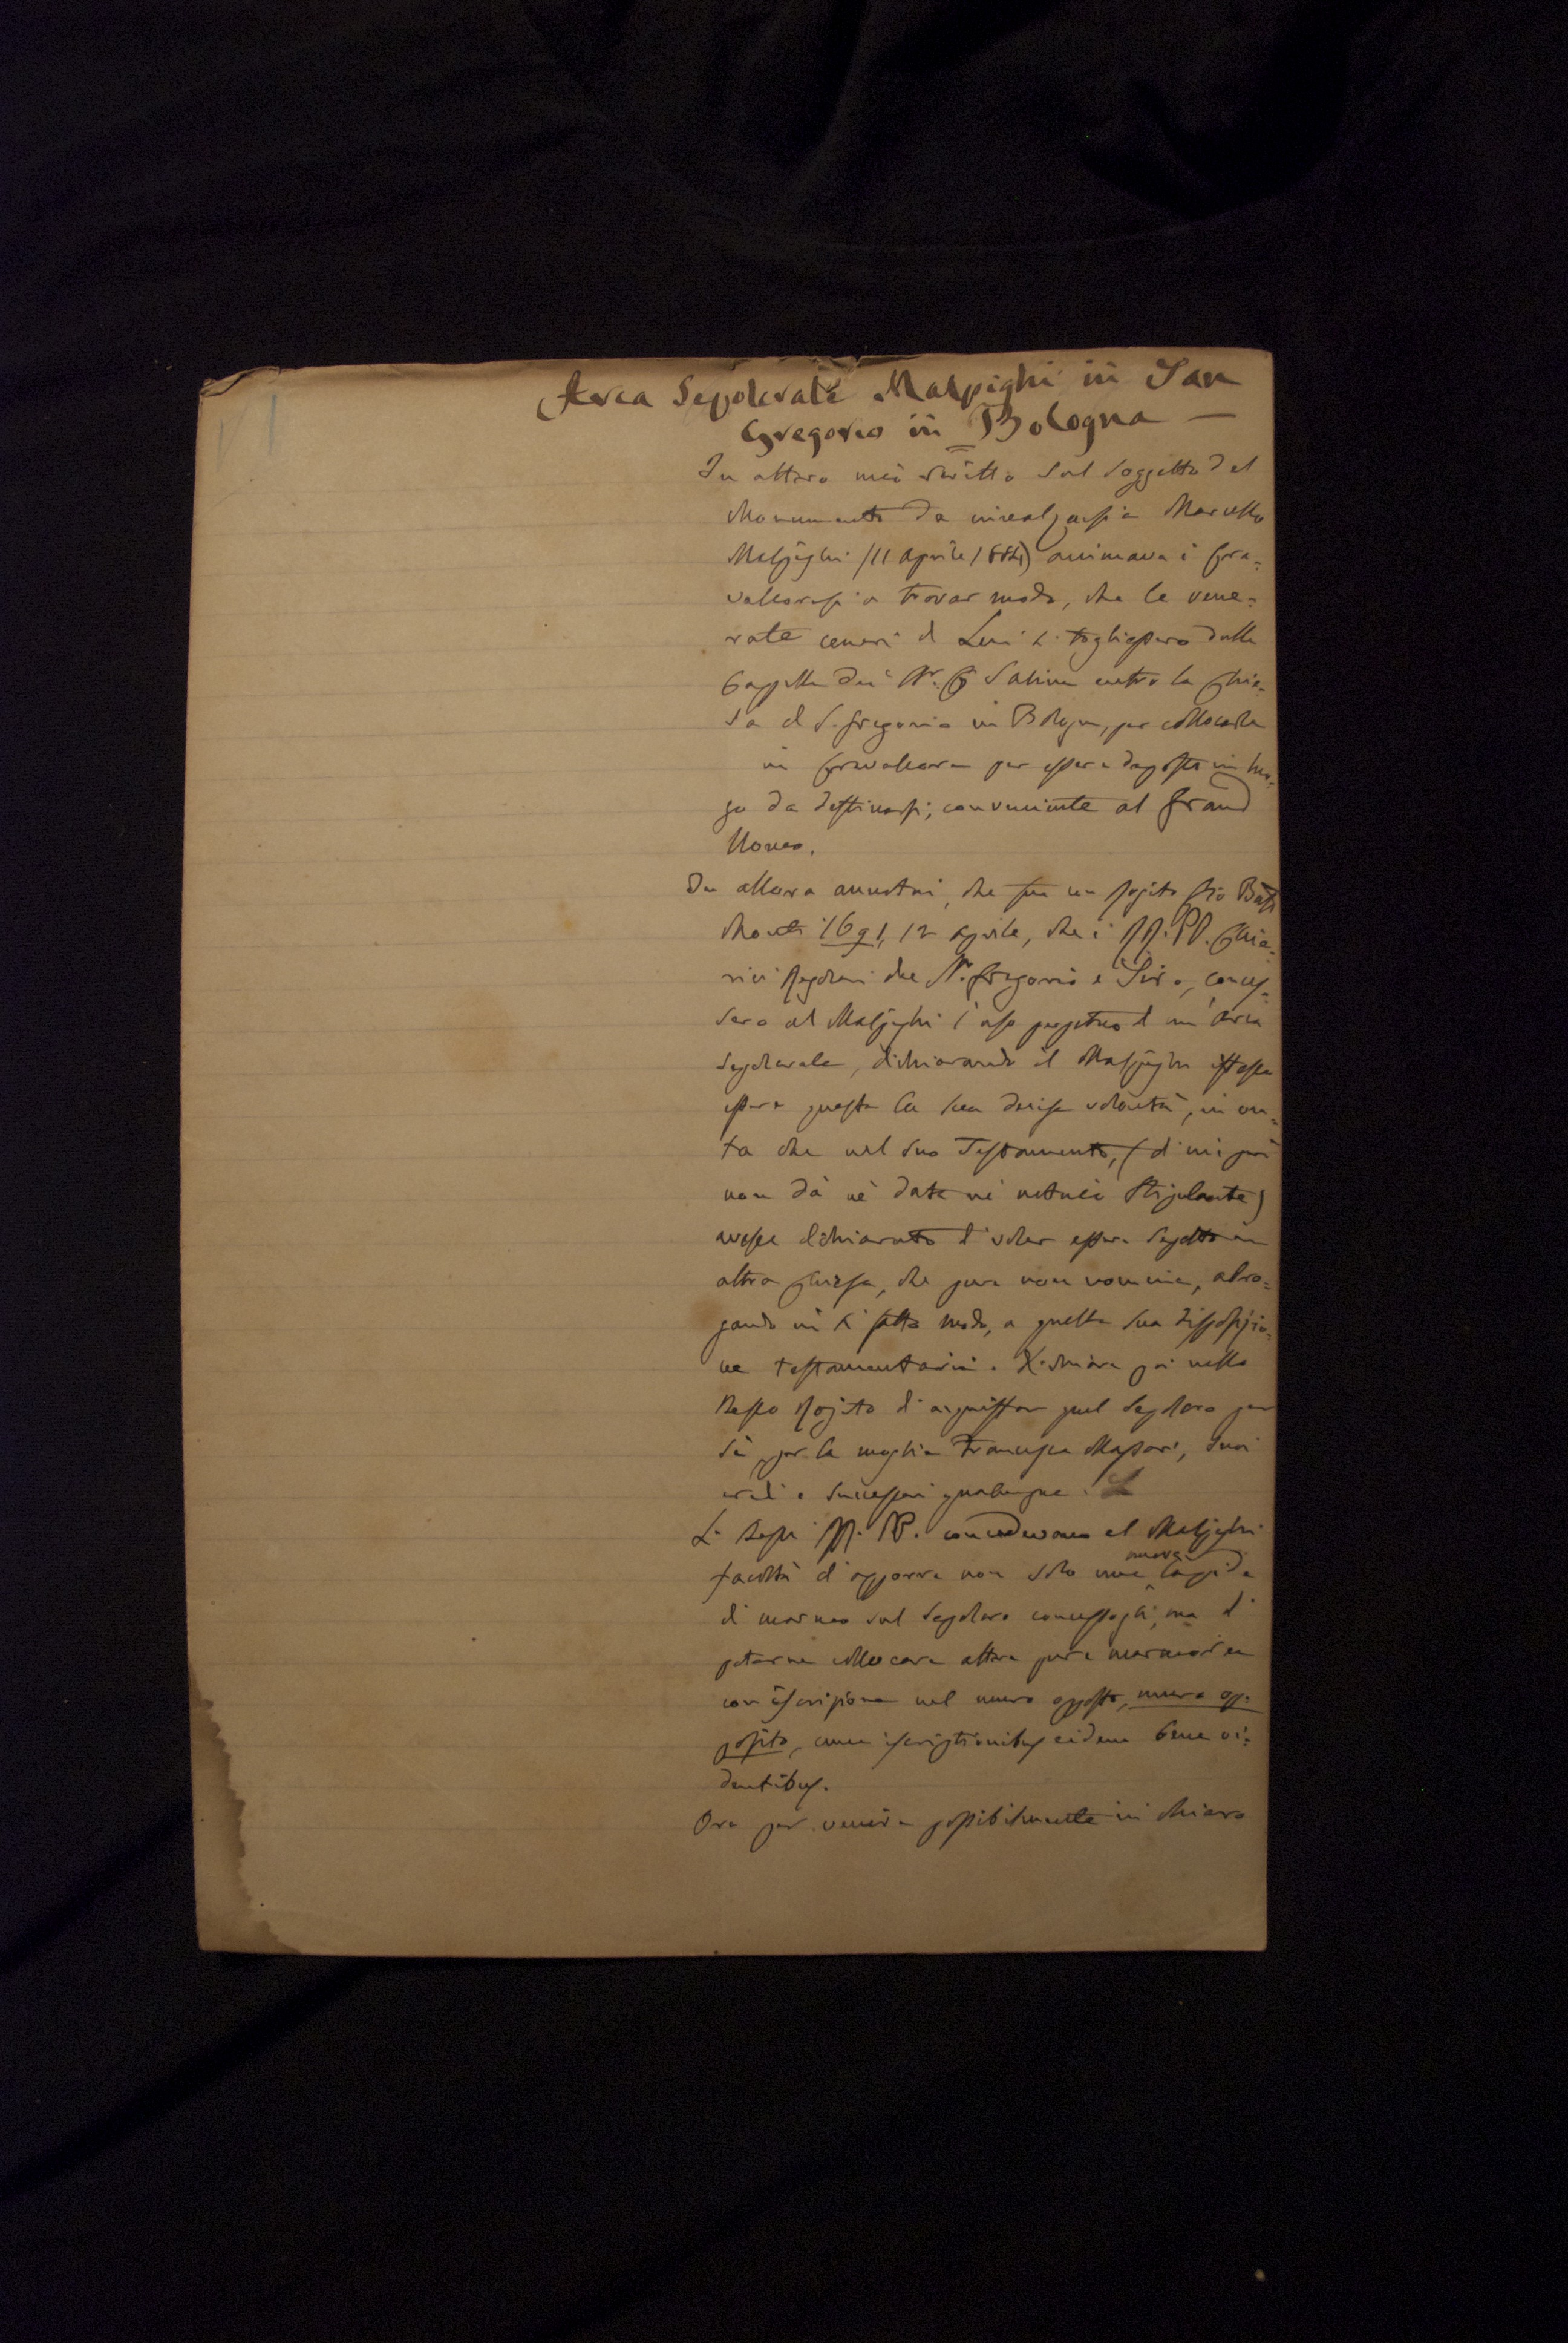 Arca Sepolcrale Malpighi in San
Gregorio in Bologna —
In altro mio scritto sul soggetto del
Monumento da innalzarsi a Marcello
Malpighi (11 Aprile 1884) animava i Cre=
valloresi a trovar modo, che le vene=
rate ceneri di Lui si togliessero dalla
Cappella dei Sabina entro la Chie=
sa di S. Gregorio in Bologna, per collocarle
in Crevalcore per essere deposte in luo=
go da destinarsi, conveniente al Grand
Uomo.
Da allora annotai, che per un Rogito Gio Batta
Monti 1691, 12 Aprile, che i RR. PP. Chie=
rici Regolari dei SS. Gregorio e Siro, conces=
sero al Malpighi l'uso perpetuo d'un'Arca
Sepolcrale, dichiarando il Malpighi stesso
essere questa la sua decisa volontà, in on=
ta che nel suo Testamento, (di cui poi
non dà nè data nè notaio stipulante)
avesse dichiarato di voler essere sepolto in
altra Chiesa, che pure non nomina, abro=
gando in sì fatto modo, a quella sua disposizio=
ne testamentaria. Dichiara poi nello
stesso Rogito di acquistar quel Sepolcro per
sè, per la moglie Francesca Massari, suoi
eredi e successori qualunque.
Li stessi RR. PP. concedevano al Malpighi
facoltà di apporre non solo una nuova lapide
di marmo sul Sepolcro concessogli, ma di
poterne collocare altra pure marmorea
con iscrizione nel muro opposto, muro op=
posito, cum iscriptionibus eidem bene vi=
dentibus.
Ora per venire possibilmente in chiaro